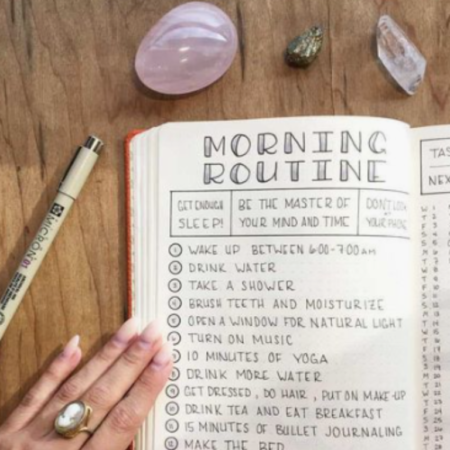 MORNING
ROUTINE
GET ENOUGH
SLEEP!
BE THE MASTER OF
YOUR MIND AND TIME
DON'T LOOK
AT
YOUR PHONE
1 WAKE UP BETWEEN 6:00-7:00 AM
2 DRINK WATER
3 TAKE A SHOWER
4 BRUSH TEETH AND MOISTURIZE
5 OPEN A WINDOW FOR NATURAL LIGHT
6 TURN ON MUSIC
7 10 MINUTES OF YOGA
8 DRINK MORE WATER
9 GET DRESSED, DO HAIR, PUT ON MAKE-UP
10 DRINK TEA AND EAT BREAKFAST
11 15 MINUTES OF BULLET JOURNALING
12 MAKE THE BED
TAS
NEX
MICRON